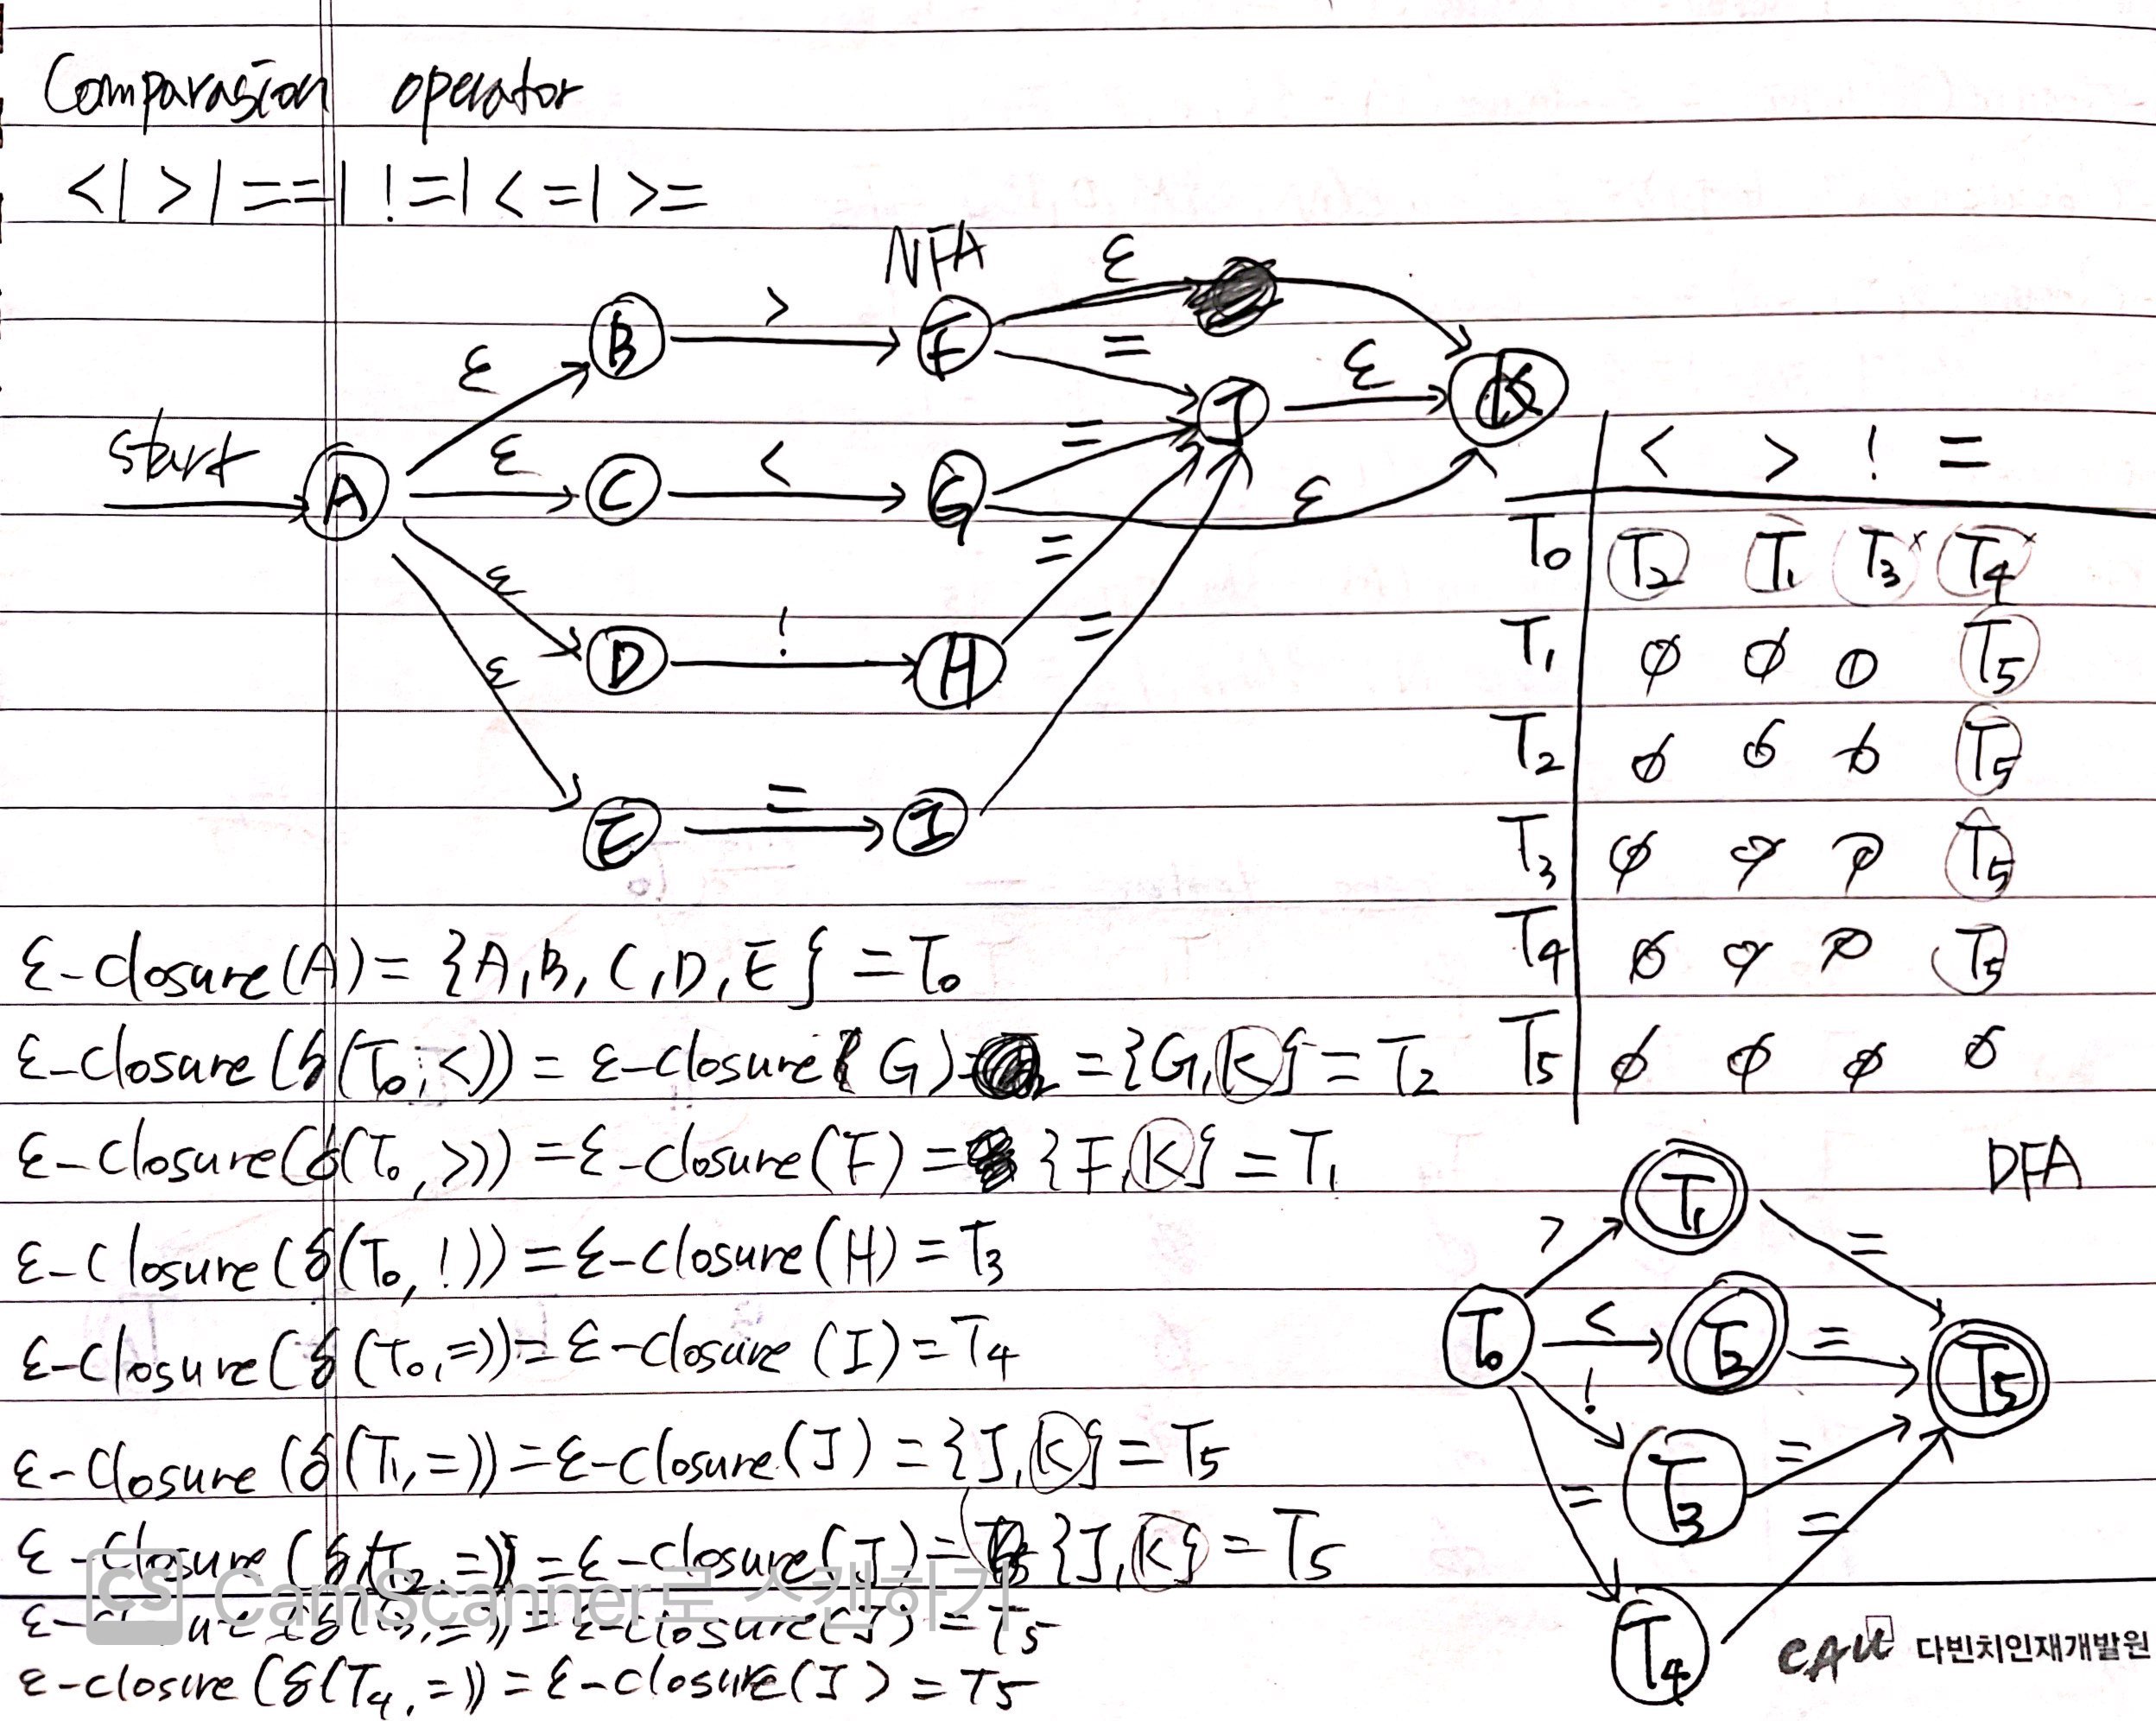 Comparasion operator
<|>|==|!=|<=|>=
NFA
start
A
B
C
D
E
F
G
H
I
J
K
ε ε ε ε
> < ! =
ε = = ε = = ε
< > ! =
T0 T2 T1 T3 T4
T1 ϕ ϕ ϕ T5
T2 ϕ ϕ ϕ T5
T3 ϕ ϕ ϕ T5
T4 ϕ ϕ ϕ T5
T5 ϕ ϕ ϕ ϕ
ε-closure(A)={A,B,C,D,E}=T0
ε-closure(δ(T0,<))=ε-closure(G)={G,K}=T2
ε-closure(δ(T0,>))=ε-closure(F)={F,K}=T1
ε-closure(δ(T0,!))=ε-closure(H)=T3
ε-closure(δ(T0,=))=ε-closure(I)=T4
ε-closure(δ(T1,=))=ε-closure(J)={J,K}=T5
ε-closure(δ(T2,=))=ε-closure(J)={J,K}=T5
ε-closure(δ(T3,=))=ε-closure(J)=T5
ε-closure(δ(T4,=))=ε-closure(J)=T5
DFA
T0
> T1 =
< T2 =
! T3 =
= T4 =
T5
CS CamScanner로 스캔하기
CAU 다빈치인재개발원